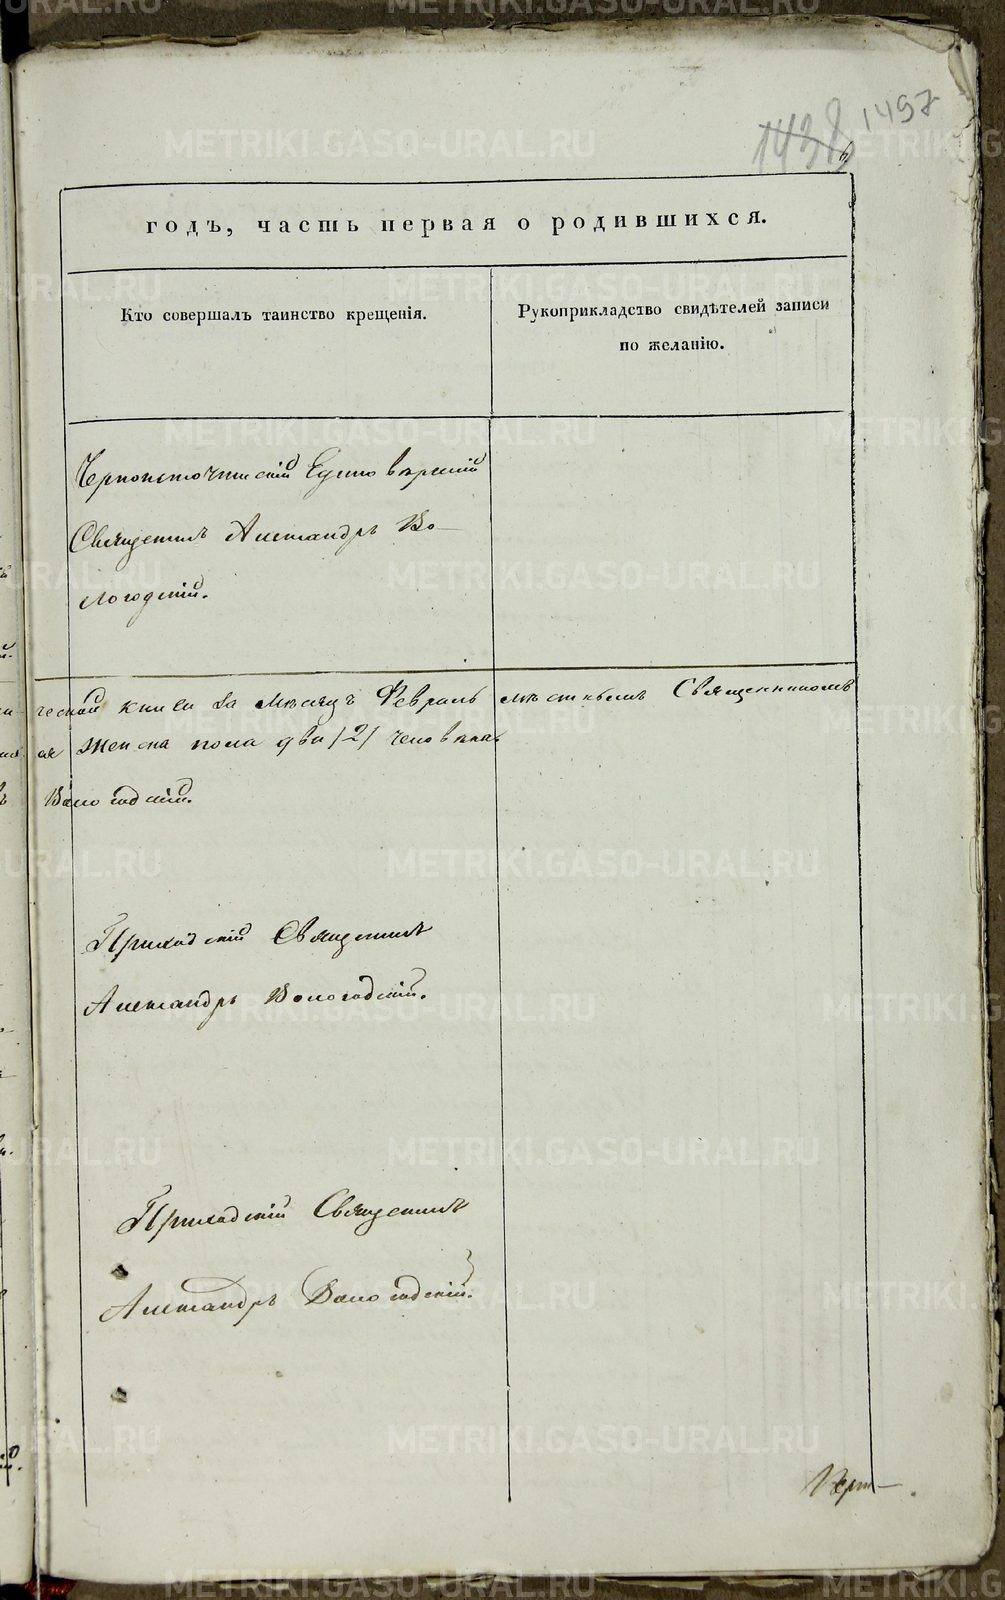 1438 1497
годъ, часть первая о родившихся.
Кто совершалъ таинство крещенія.
Рукоприкладство свидѣтелей записи
по желанію.
Черноисточинскій Единовѣрческій
Священникъ Александръ Во-
логодскій.
ческой книги за мѣсяцъ Февраль мѣстнымъ Священникомъ
ая женска пола два /2/ человѣка.
Вологодскій.
Приходскій Священникъ
Александръ Вологодскій.
Приходскій Священникъ
Александръ Вологодскій.
METRIKI.GASO-URAL.RU